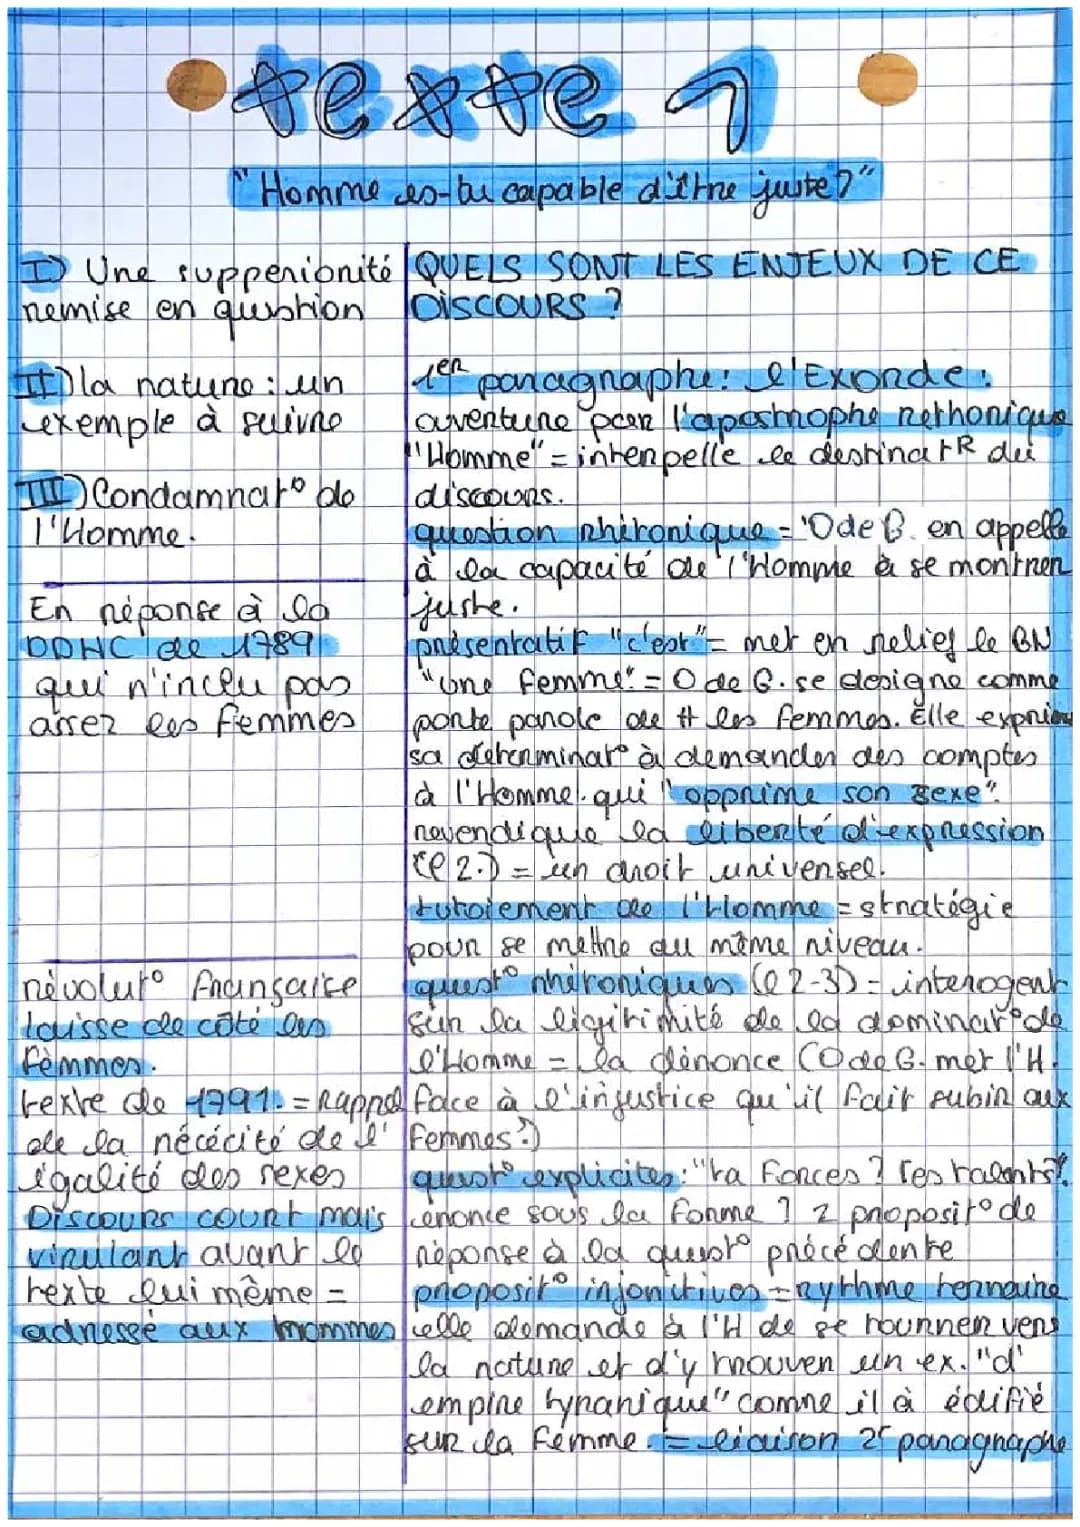 texte 1
"Homme es-tu capable d'être juste?"
I) Une supperiorité
remise en question
II) la nature : un
exemple à suivre
III) Condamnat° de
l'Homme.
En réponse à la
DDHC de 1789
qui n'inclu pas
assez les femmes
révolut° française
laisse de côté les
femmes.
texte de 1791. = Rappel
de la nécécité de l'
égalité des sexes
Discours court mais
virulant avant le
texte lui même =
adressé aux hommes
QUELS SONT LES ENJEUX DE CE
DISCOURS ?
1er paragraphe : l'Exorde :
ouverture par l'apostrophe rethorique
"Homme" = interpelle le destinatR du
discours.
question rhétorique = 'O de G. en appelle
à la capacité de l'Homme à se montrer
juste.
présentatif "c'est" = met en relief le GN
"une femme" = O de G. se designe comme
porte parole de tt les femmes. Elle exprime
sa determinat° à demander des comptes
à l'Homme. qui "opprime son sexe".
revendique la liberté d'expression
(l 2.) = un droit universel.
tutoiement de l'Homme = stratégie
pour se mettre au même niveau.
quest° rhétoriques (l 2-3) = interogent
sur la légitimité de la dominat° de
l'Homme = la dénonce (O de G. met l'H.
face à l'injustice qu'il fait subir aux
femmes.)
quest° explicites : "ta forces ? tes talents ?".
énonce sous la forme ? 2 proposit° de
réponse à la quest° précédente
proposit° injonctives = rythme ternaire
elle demande à l'H de se tourner vers
la nature et d'y trouver un ex. "d'
empire tyranique" comme il à édifié
sur la femme. = liaison 2e paragraphe